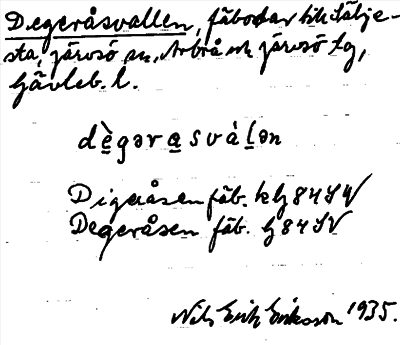 Degeråsvallen, fäbodar till Tälje-
sta, Järvsö sn, Arbrå och Järvsö tg,
Gävleb. l.
dè̱gəra̱svàḻən
Digeråsen fäb. kbl 84 SV
Degeråsen fäb. gl 84 SV
Nils Erik Eriksson 1935.